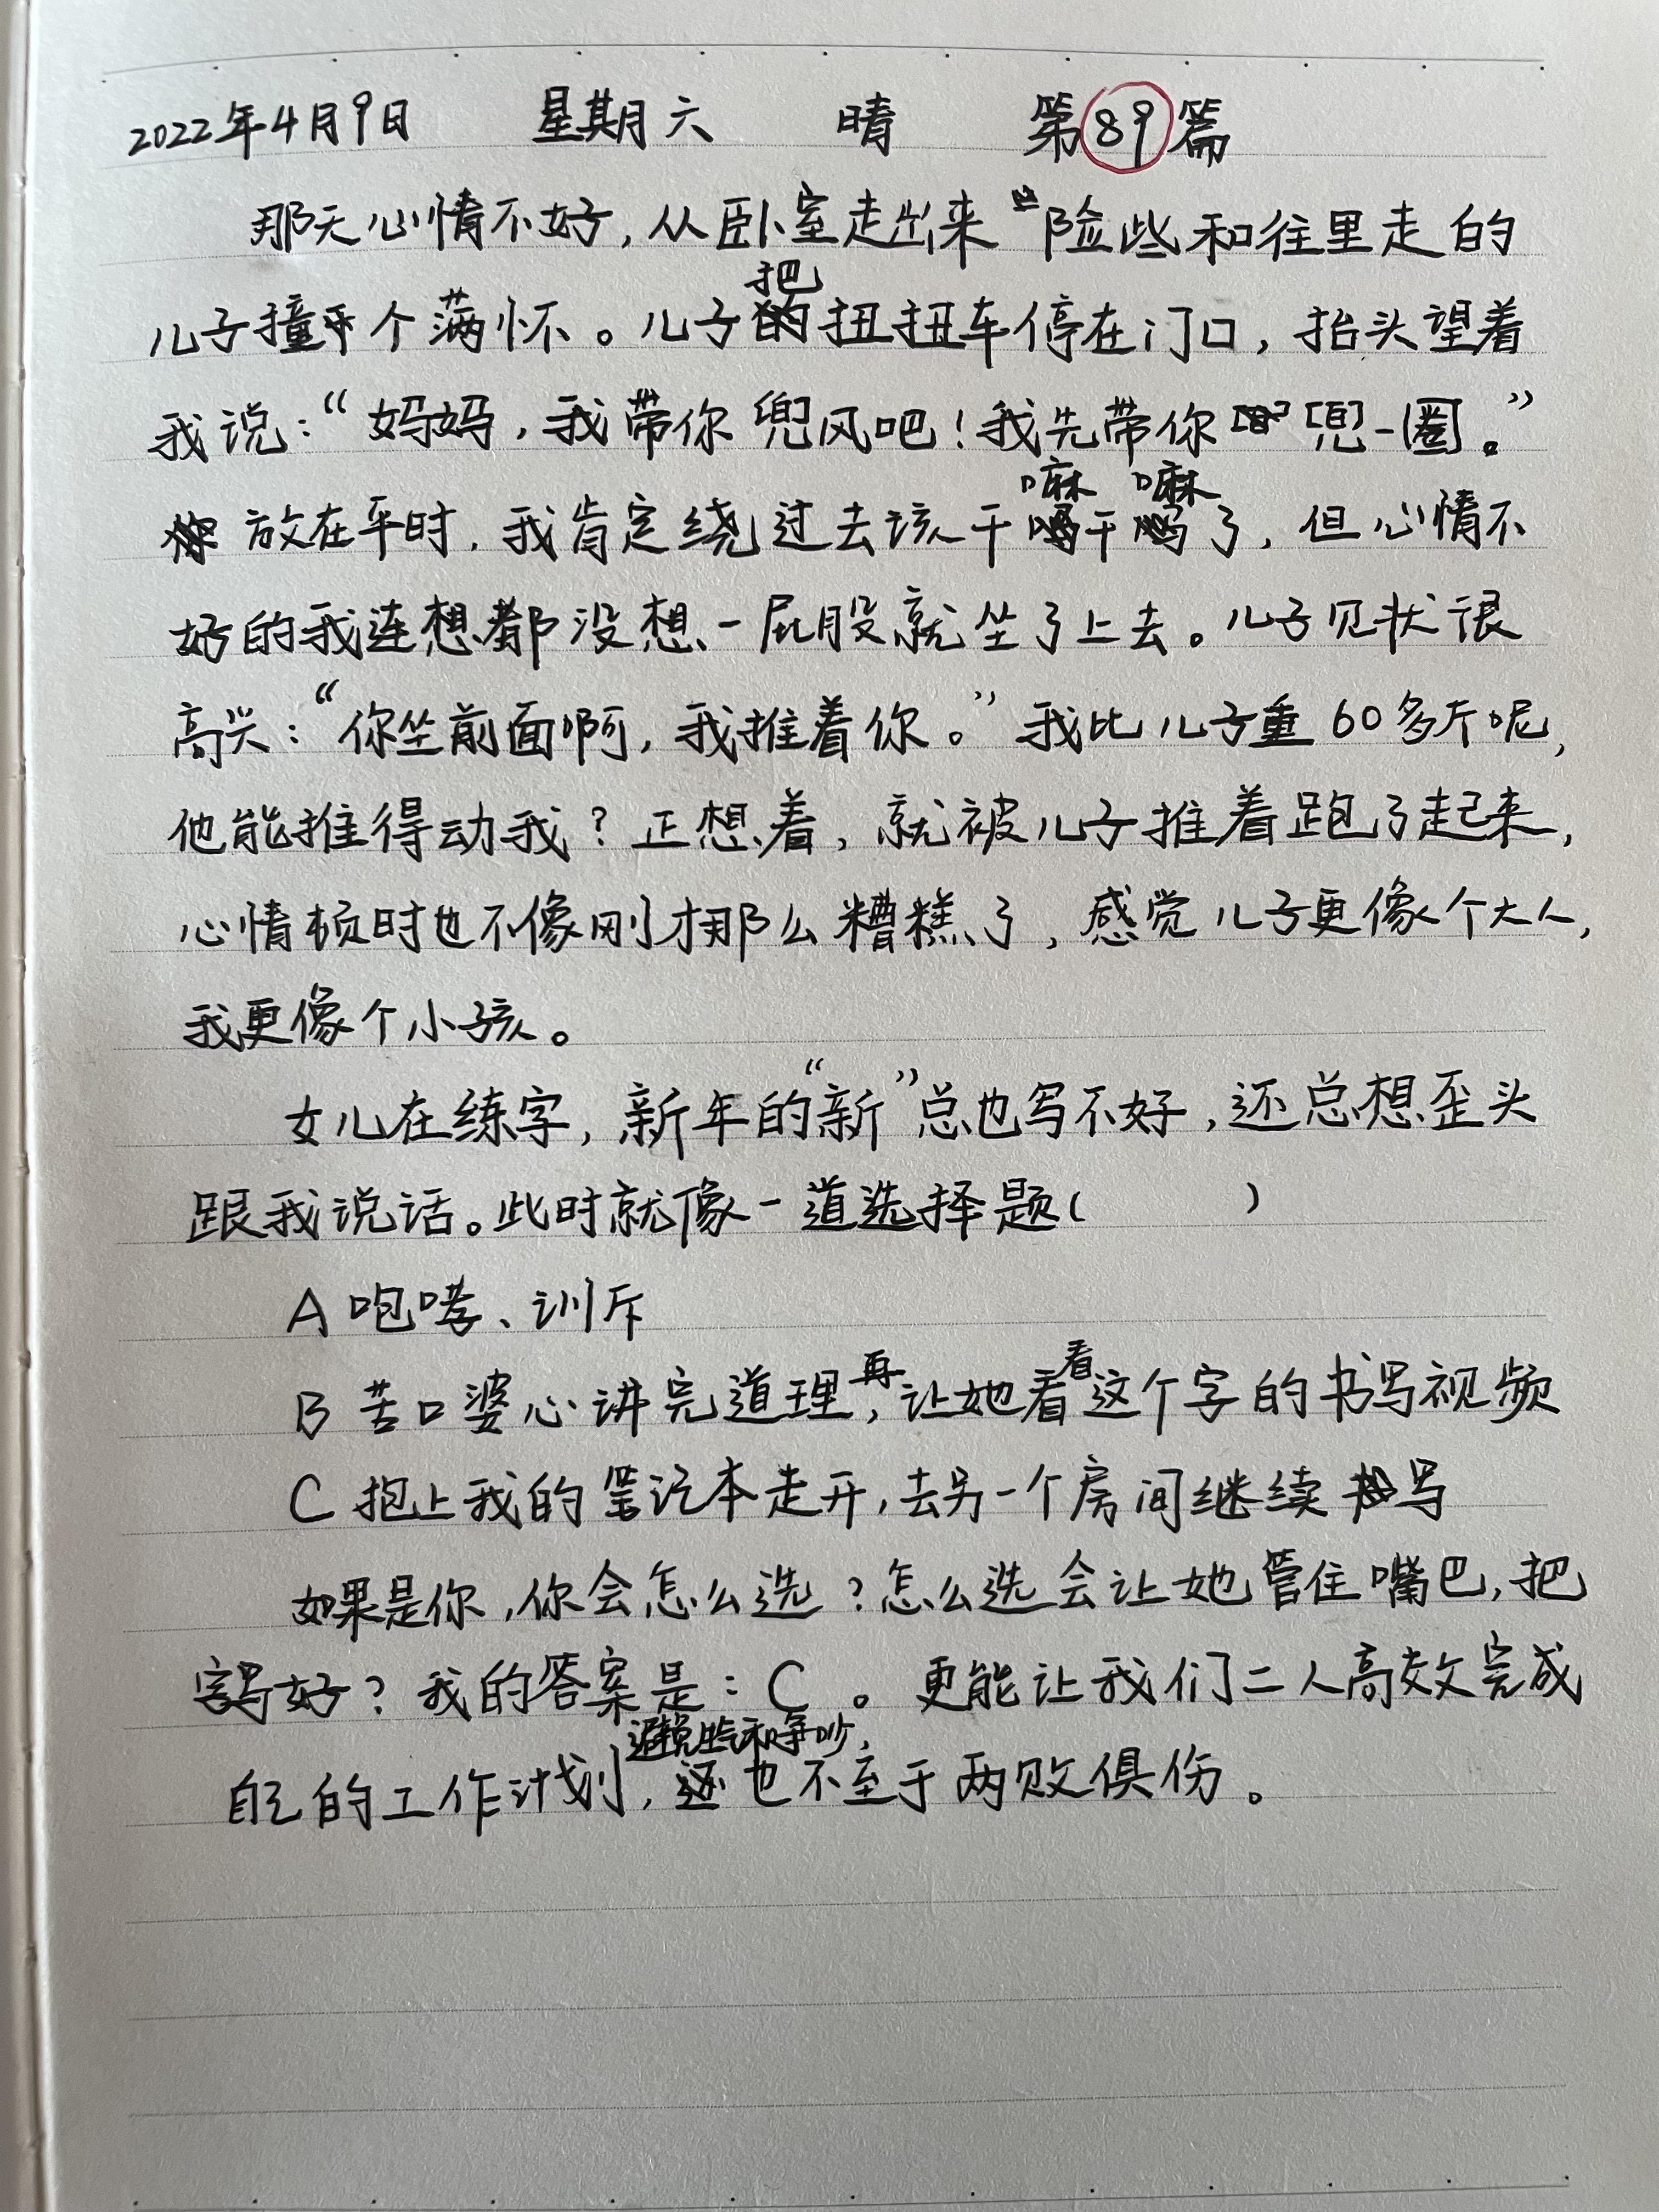 2022年4月9日 星期六 晴 第89篇
那天心情不好,从卧室走出来险些和往里走的
儿子撞个满怀。儿子把扭扭车停在门口,抬头望着
我说:“妈妈,我带你兜风吧!我先带你兜一圈。”
放在平时,我肯定绕过去该干嘛干嘛了,但心情不
好的我连想都没想一屁股就坐了上去。儿子见状很
高兴:“你坐前面啊,我推着你。”我比儿子重60多斤呢,
他能推得动我?正想着,就被儿子推着跑了起来,
心情顿时也不像刚才那么糟糕了,感觉儿子更像个大人,
我更像个小孩。
女儿在练字,新年的“新”总也写不好,还总想歪头
跟我说话。此时就像一道选择题( )
A 咆哮、训斥
B 苦口婆心讲完道理,再让她看看这个字的书写视频
C 抱上我的笔记本走开,去另一个房间继续写
如果是你,你会怎么选?怎么选会让她管住嘴巴,把
字写好?我的答案是:C。更能让我们二人高效完成
自己的工作计划,避免生气和争吵,也不至于两败俱伤。